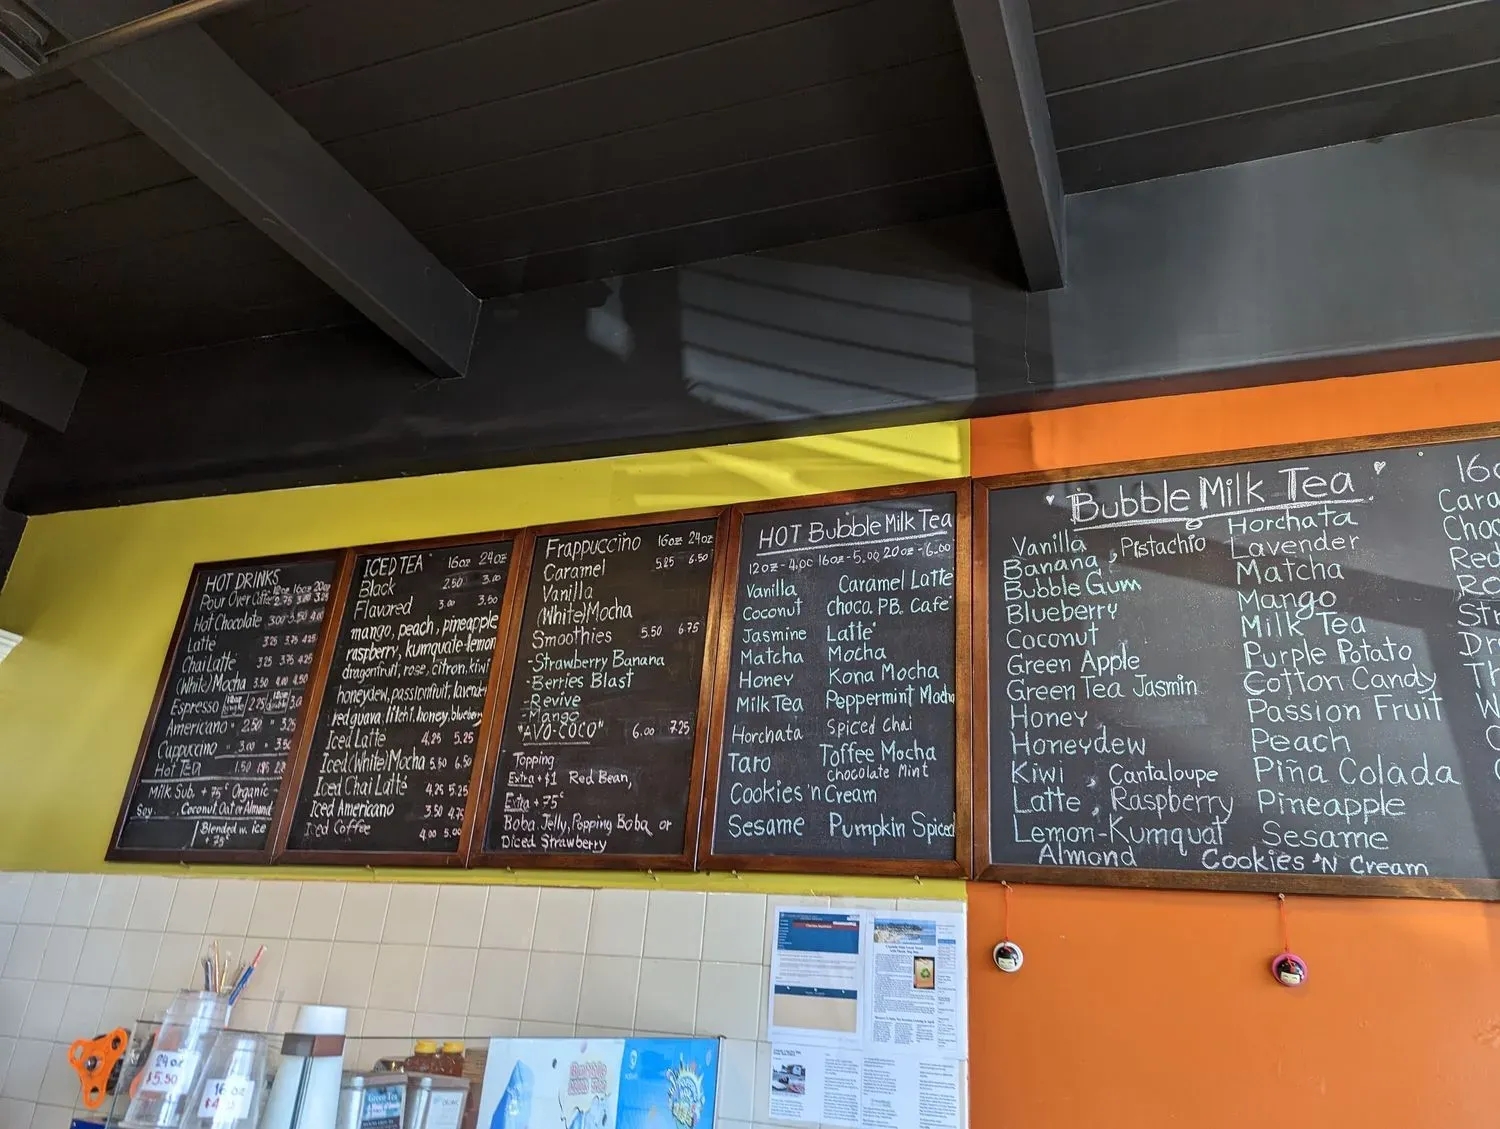 HOT DRINKS
12oz 16oz 20oz
Pour Over Coffee 2.75
Hot Chocolate 3.00 3.50 4.00
Latte 3.25 3.75 4.25
Chai Latte 3.25 3.75 4.25
(White) Mocha 3.50 4.00 4.50
Espresso
Americano 2.50 " 3.25
Cappuccino " 3.00 " 3.50
Hot Tea 1.50
Milk Sub. + 75¢ Organic
Soy Coconut Oat or Almond
Blended w. ice
+ 75¢
ICED TEA 16oz 24oz
Black 2.50 3.00
Flavored 3.00 3.50
mango, peach, pineapple
raspberry, kumquate-lemon
dragonfruit, rose, citron, kiwi
honeydew, passionfruit, lavender
red guava, litchi, honey, blueberry
Iced Latte 4.25 5.25
Iced (White) Mocha 5.50 6.50
Iced Chai Latte 4.25 5.25
Iced Americano 3.50 4.75
Iced Coffee 4.00 5.00
Frappuccino 16oz 24oz
Caramel 5.85 6.50
Vanilla
(White) Mocha
Smoothies 5.50 6.75
-Strawberry Banana
-Berries Blast
-Revive
-Mango
"AVO-COCO" 6.00 7.25
Topping
Extra +$1 Red Bean,
Extra + 75¢
Boba, Jelly, Popping Boba, or
Diced Strawberry
HOT Bubble Milk Tea
12oz-4.00 16oz-5.00 20oz-6.00
Vanilla Caramel Latte
Coconut Choco. P.B. Cafe
Jasmine Latte
Matcha Mocha
Honey Kona Mocha
Milk Tea Peppermint Mocha
Horchata Spiced Chai
Taro Toffee Mocha
Chocolate Mint
Cookies 'n Cream
Sesame Pumpkin Spiced
Bubble Milk Tea
Vanilla, Pistachio
Banana
Bubble Gum
Blueberry
Coconut
Green Apple
Green Tea Jasmin
Honey
Honeydew
Kiwi, Cantaloupe
Latte, Raspberry
Lemon-Kumquat
Almond
Horchata
Lavender
Matcha
Mango
Milk Tea
Purple Potato
Cotton Candy
Passion Fruit
Peach
Piña Colada
Pineapple
Sesame
Cookies 'N Cream
24oz
$5.50
16oz
Green Tea